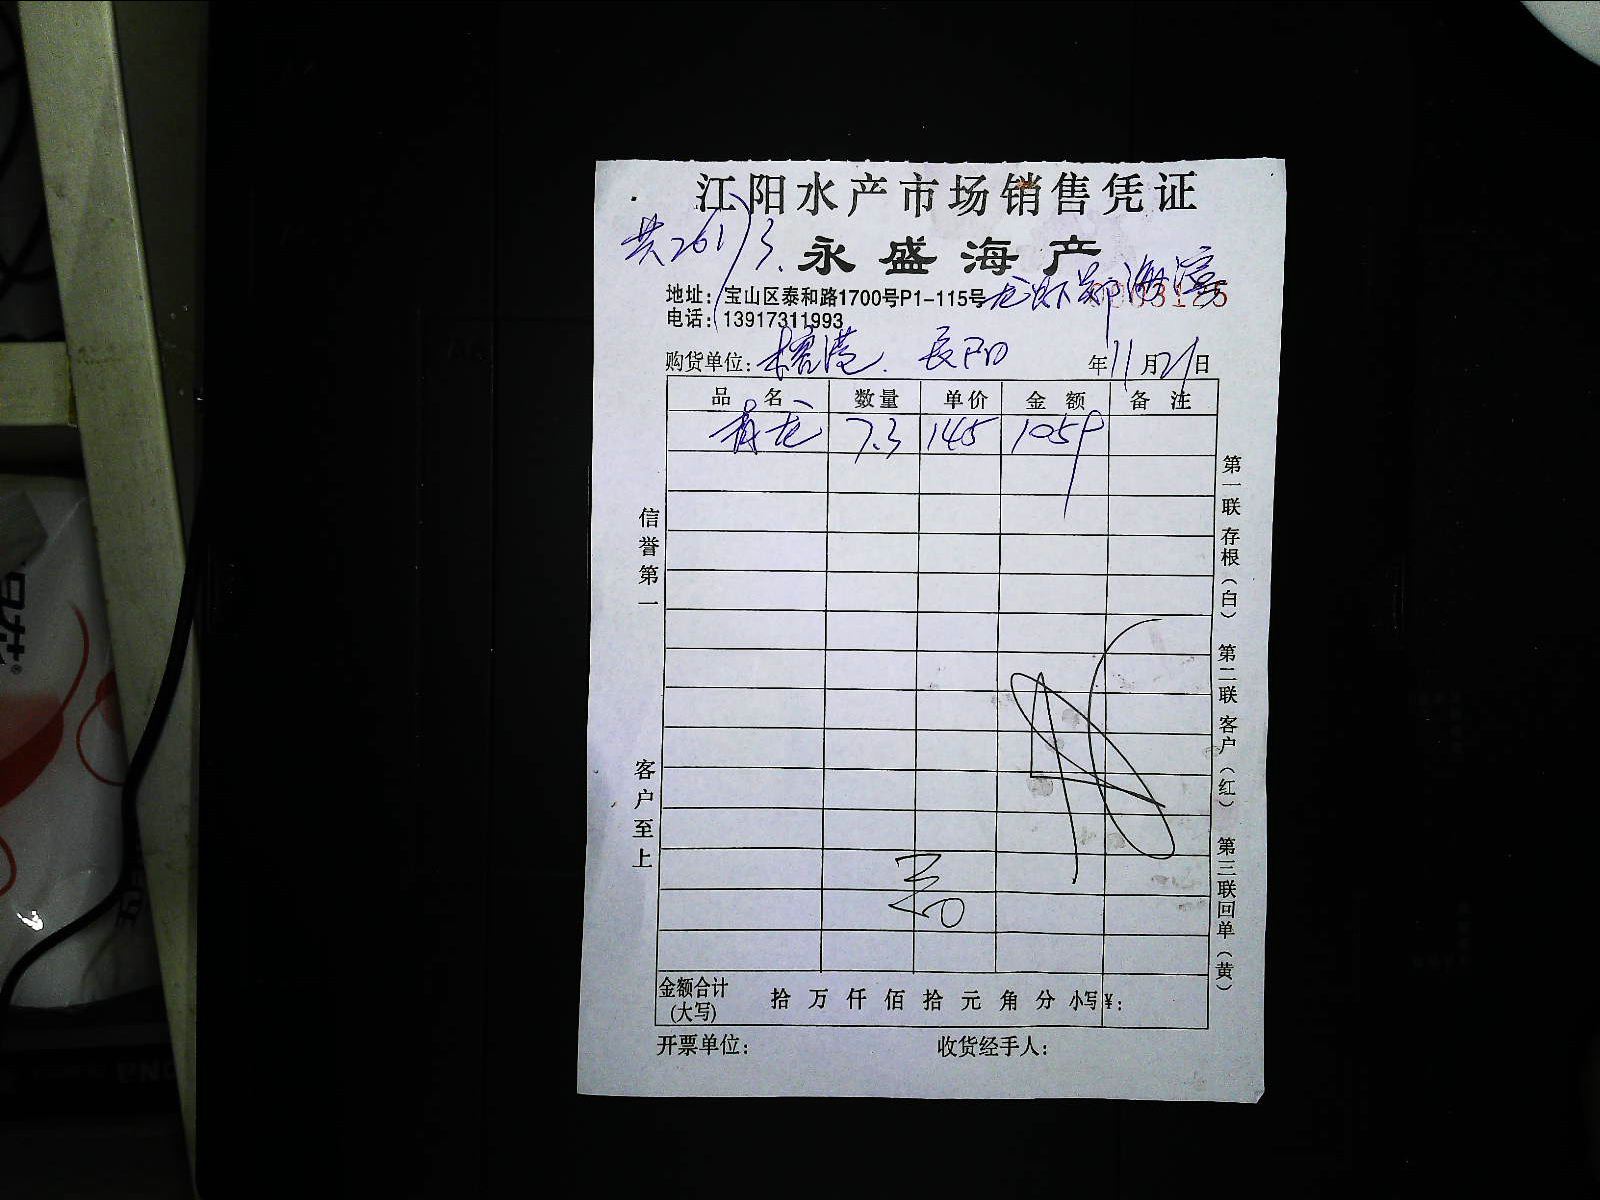 江阳水产市场销售凭证
共2613.
永盛海产
地址：宝山区泰和路1700号P1-115号
电话：13917311993
购货单位： 长阳 年11月21日
品名 数量 单价 金额 备注
青龙 7.3 145 1059
信誉第一
客户至上
第一联 存根（白） 第二联 客户（红） 第三联 回单（黄）
金额合计(大写) 拾 万 仟 佰 拾 元 角 分 小写¥：
开票单位： 收货经手人：